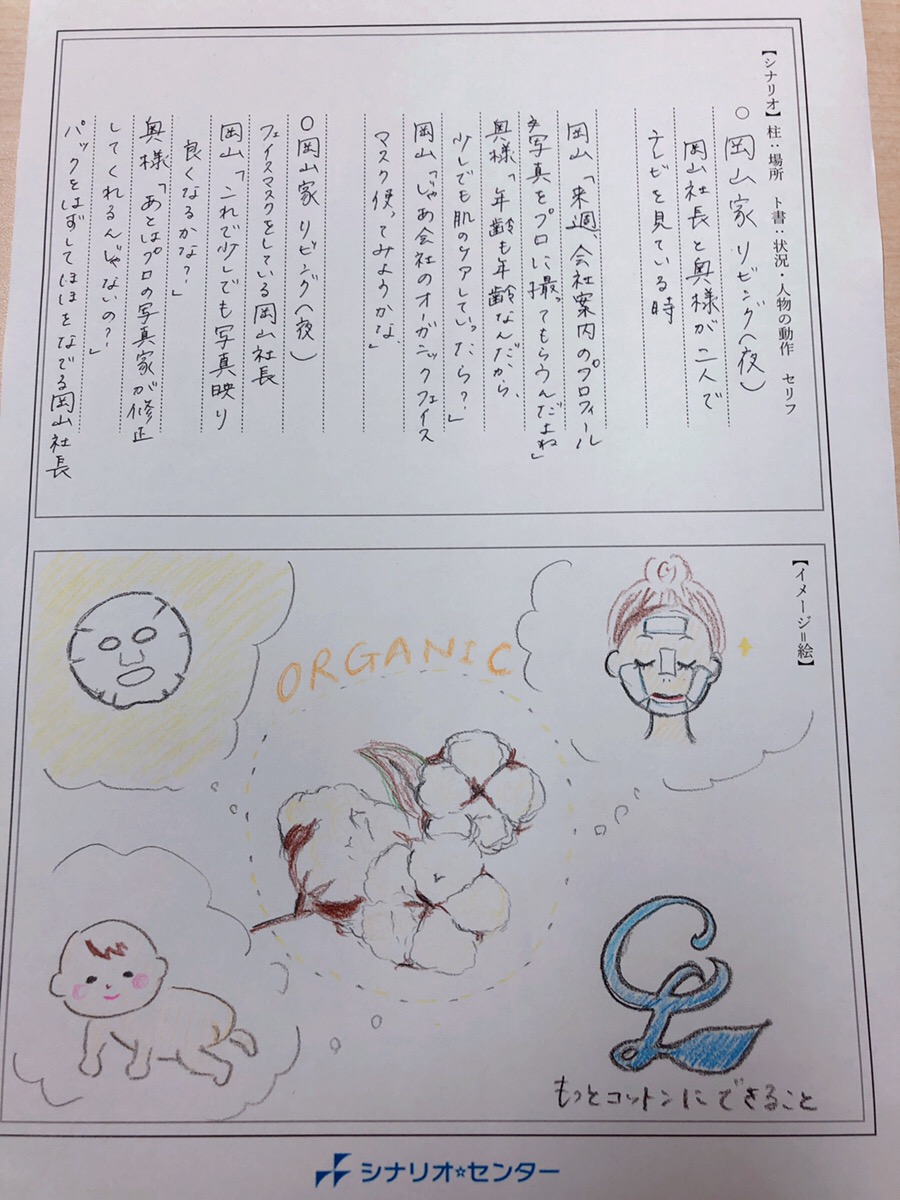 【シナリオ】柱：場所　ト書：状況・人物の動作　セリフ
〇岡山家 リビング（夜）
岡山社長と奥様が二人で
テレビを見ている時
岡山「来週、会社案内のプロフィール
写真をプロに撮ってもらうんだよね」
奥様「年齢も年齢なんだから、
少しでも肌のケアしていったら？」
岡山「じゃあ会社のオーガニックフェイス
マスク使ってみようかな」
〇岡山家 リビング（夜）
フェイスマスクをしている岡山社長
岡山「これで少しでも写真映り
良くなるかな？」
奥様「あとはプロの写真家が修正
してくれるんじゃないの？」
パックをはずしてほほをなでる岡山社長
【イメージ＝絵】
ORGANIC
もっとコットンにできること
シナリオ☆センター